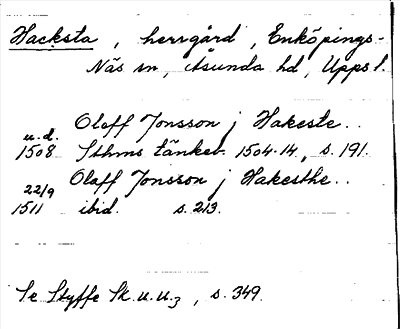 Hacksta, herrgård, Enköpings-
Näs sn, Åsunda hd, Uppsl.
Olaff Jonsson j Hakeste..
u.d.
1508 Sthms tänkeb. 1504-14, s. 191.
Olaff Jonsson j Hakesthe..
22/9
1511 ibid. s. 213.
Se Styffe Sk.u.u.3, s. 349.